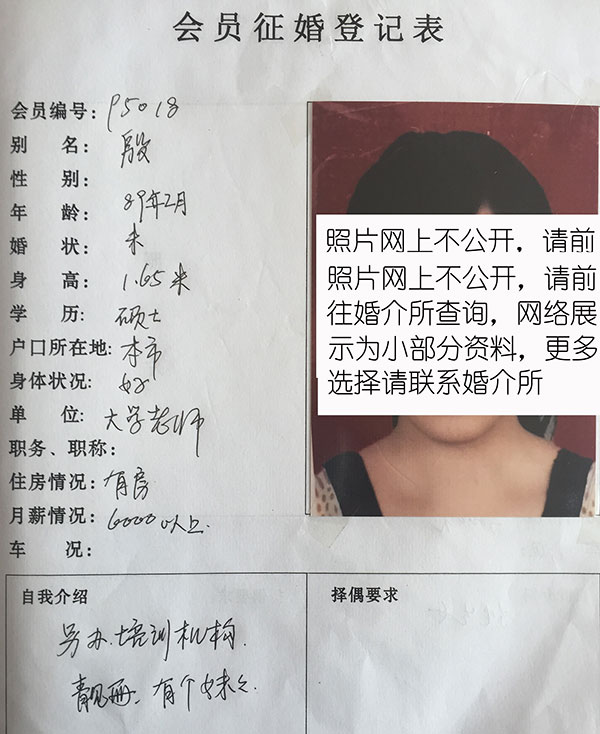 会员征婚登记表
会员编号：P5018
别 名：殷
性 别：
年 龄：89年2月
婚 状：未
身 高：1.65米
学 历：硕士
户口所在地：本市
身体状况：好
单 位：大学老师
职务、职称：
住房情况：有房
月薪情况：6000以上.
车 况：
照片网上不公开，请前
照片网上不公开，请前
往婚介所查询，网络展
示为小部分资料，更多
选择请联系婚介所
自我介绍
另办培训机构.
有个妹
择偶要求